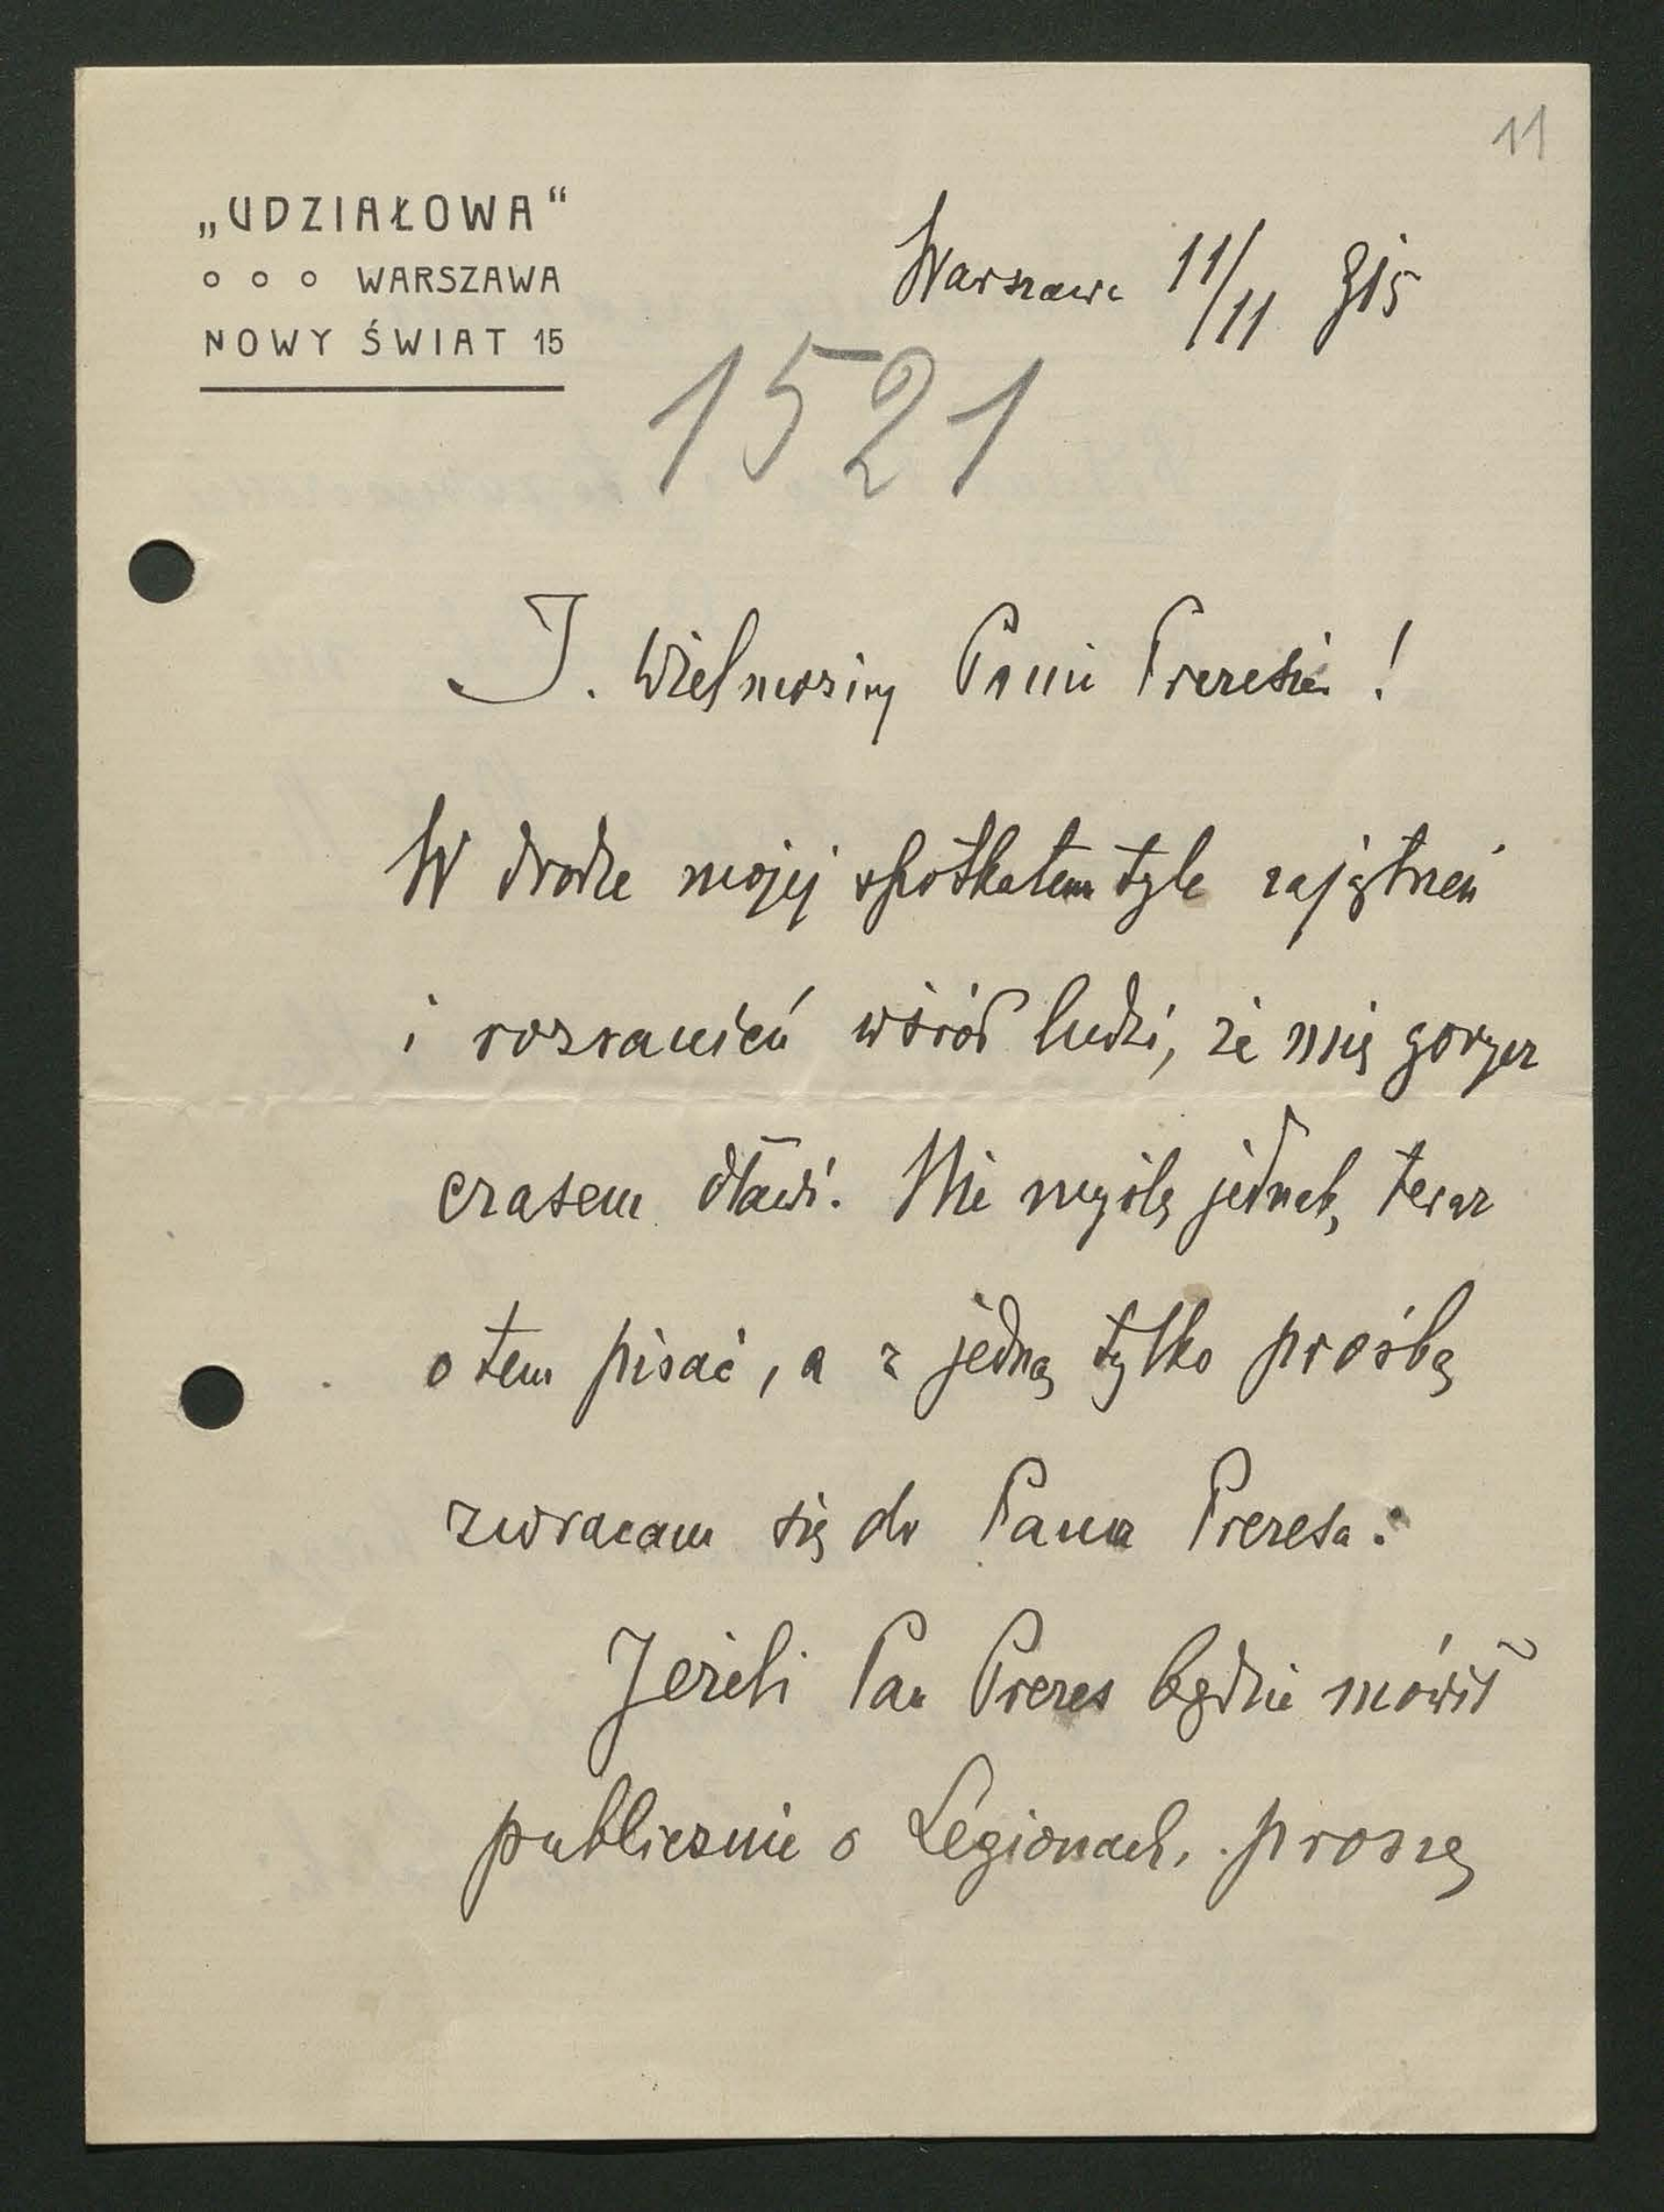 11
„UDZIAŁOWA“
WARSZAWA
NOWY ŚWIAT 15
Warszawa 11/11 915
1521
J. Wielmożny Panie Prezesie!
W drodze mojej spotkałem tyle zajątrzeń
i rozranień wśród ludzi, że mię gorycz
czasem dławi. Nie myślę jednak, teraz
o tem pisać, a z jedną tylko prośbą
zwracam się do Pana Prezesa:
Jeżeli Pan Prezes będzie mówił
publicznie o Legionach, proszę